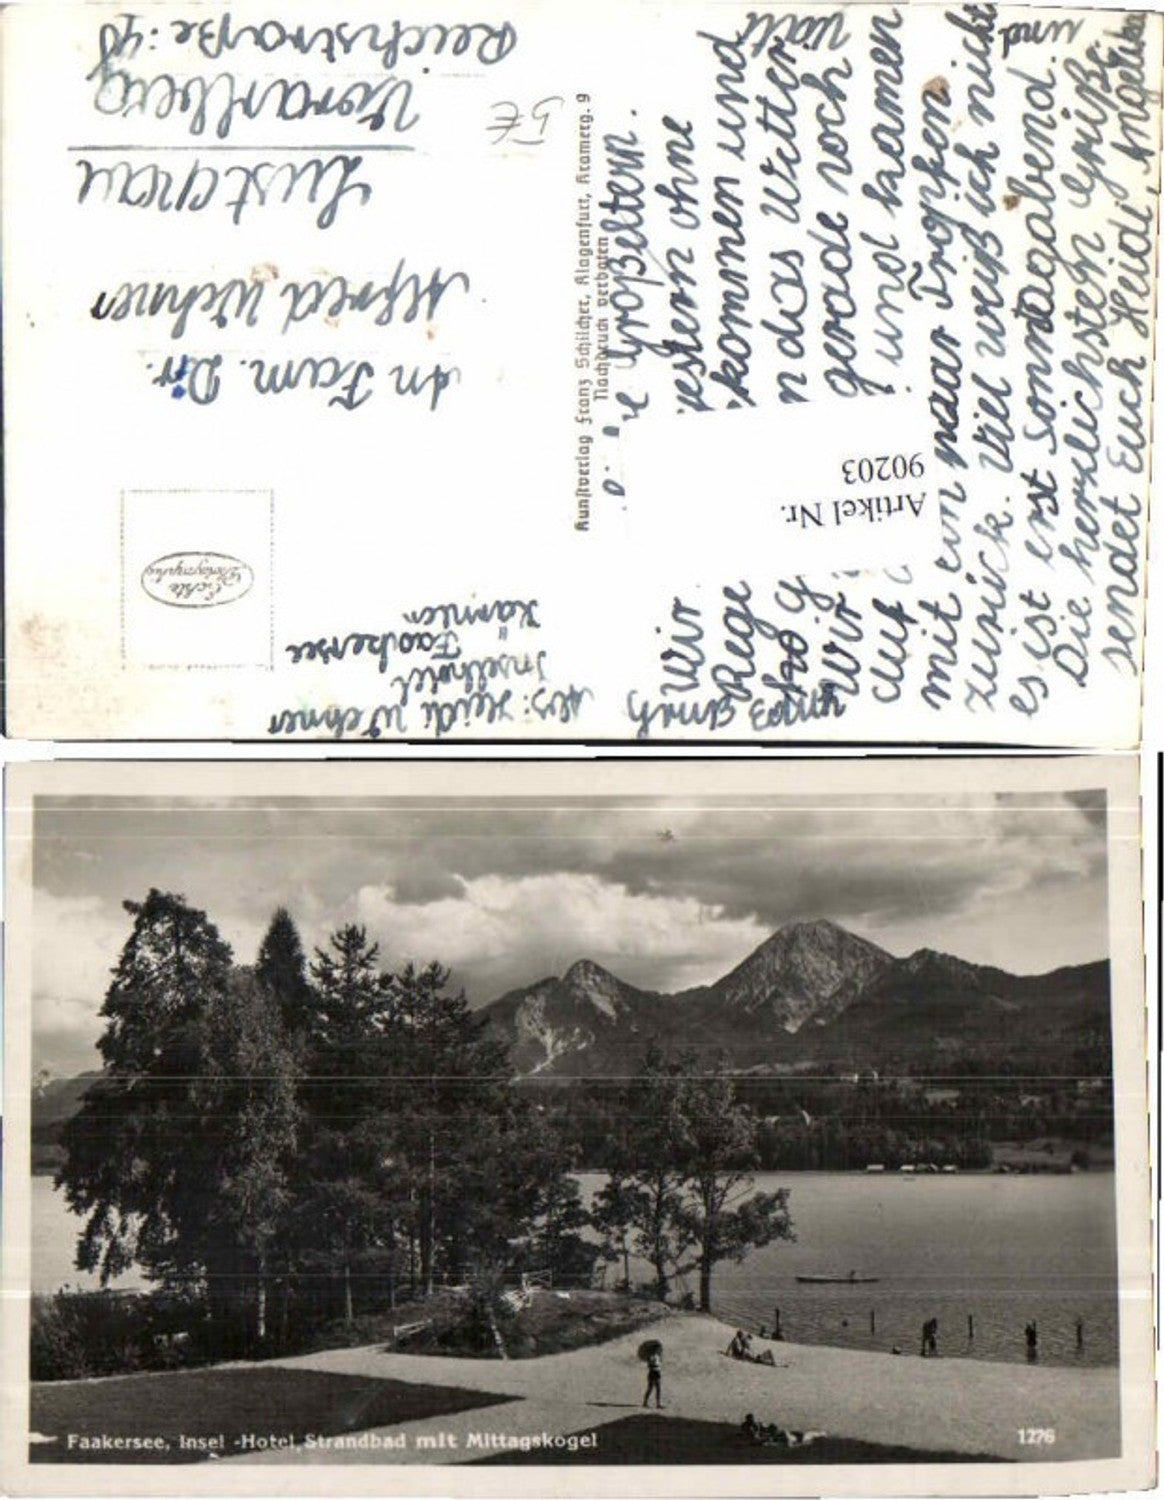 An Fam. Dir.
Alfred Wehner
Lustenau
Vorarlberg
Reichstraße: 40
5€
Echte
Photographie
Abs: Heidi Wehner
Inselhotel
Faakersee
Kärnten
Kunstverlag Franz Schilcher, Klagenfurt, Kramerg. 9
Nachdruck verboten
Großeltern.
Wir gestern ohne
Rege kommen und
das Wetter
Wir gerade noch
auf und kamen
mit ein paar Tropfen
zurück. Viel weiß ich nicht
es ist erst Sonntagabend. und
Die herzlichsten Grüße
sendet Euch Heidi, Angelika
Artikel Nr.
90203
Faakersee, Insel -Hotel, Strandbad mit Mittagskogel
1276